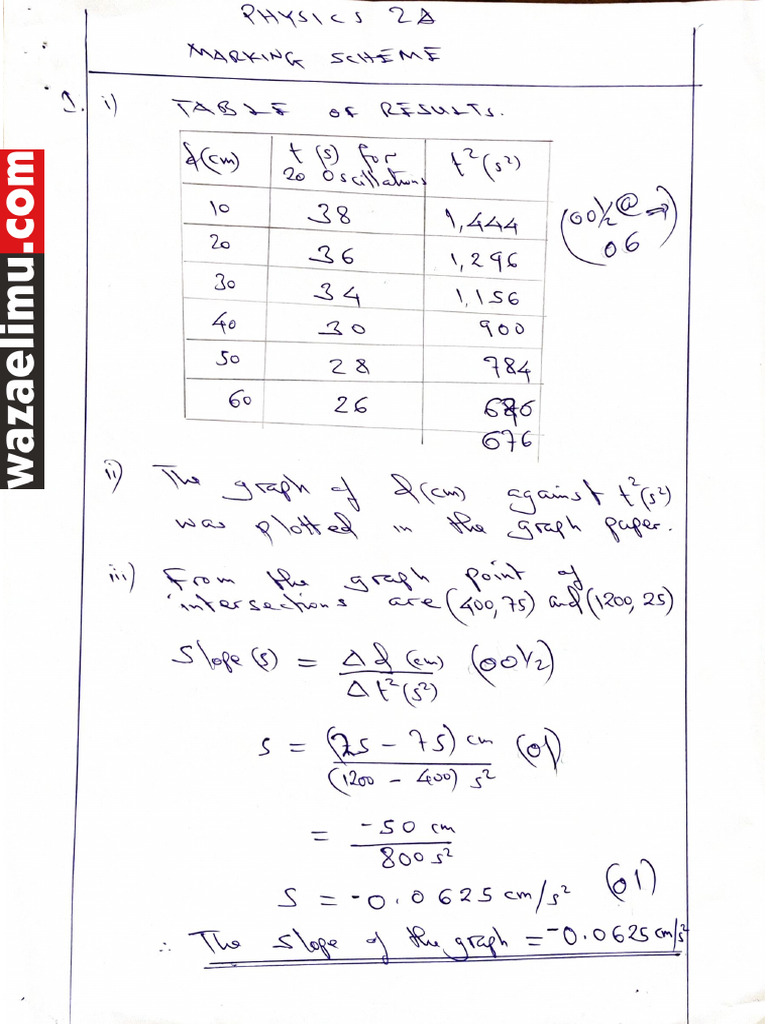 PHYSICS 2A
MARKING SCHEME
1. i) TABLE OF RESULTS.
d(cm) t(s) for 20 Oscillations t²(s²)
10 38 1,444
20 36 1,296
30 34 1,156
40 30 900
50 28 784
60 26
676
(00½@ ⇒ 06)
ii) The graph of d(cm) against t²(s²)
was plotted in the graph paper.
iii) From the graph point of
intersections are (400,75) and (1200, 25)
Slope(s) = Δd (cm) / Δt²(s²) (00½)
S = (25 - 75) cm / (1200 - 400) s² (01)
= -50 cm / 800 s²
S = -0.0625 cm/s² (01)
∴ The slope of the graph = -0.0625 cm/s²
wazaelimu.com